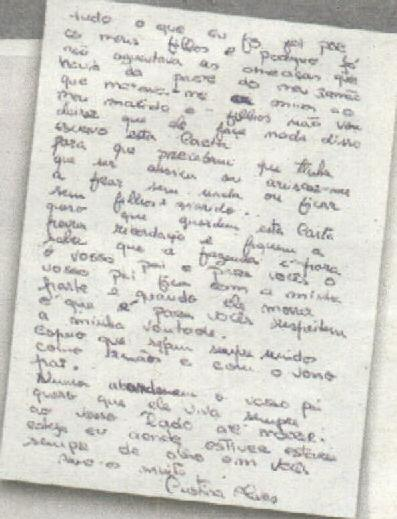 tudo o que eu fiz foi por
os meus filhos e porque já
não aguentava as ameaças que
havia da parte do meu irmão
que matava-me a mim ao
meu marido e filhos não vou
deixar que ele faça nada disso
escrevo esta Carta
para que percebam que tinha
que ser assim ou arriscar-me
a ficar sem nada ou ficar
sem filhos e marido...
quero que guardem esta Carta
recordação e fiquem a
saber que a fazenda é para
o vosso pai e para vocês o
vosso pai fica com a minha
parte e quando ele morrer
é para vocês respeitem
a minha vontade.
Espero que sejam sempre unidos
como irmãos e com o vosso
pai.
Nunca abandonem o vosso pai
quero que ele viva sempre
ao vosso lado até morrer.
esteja eu aonde estiver estarei
sempre de olho em vocês
muito
Cristina Alves